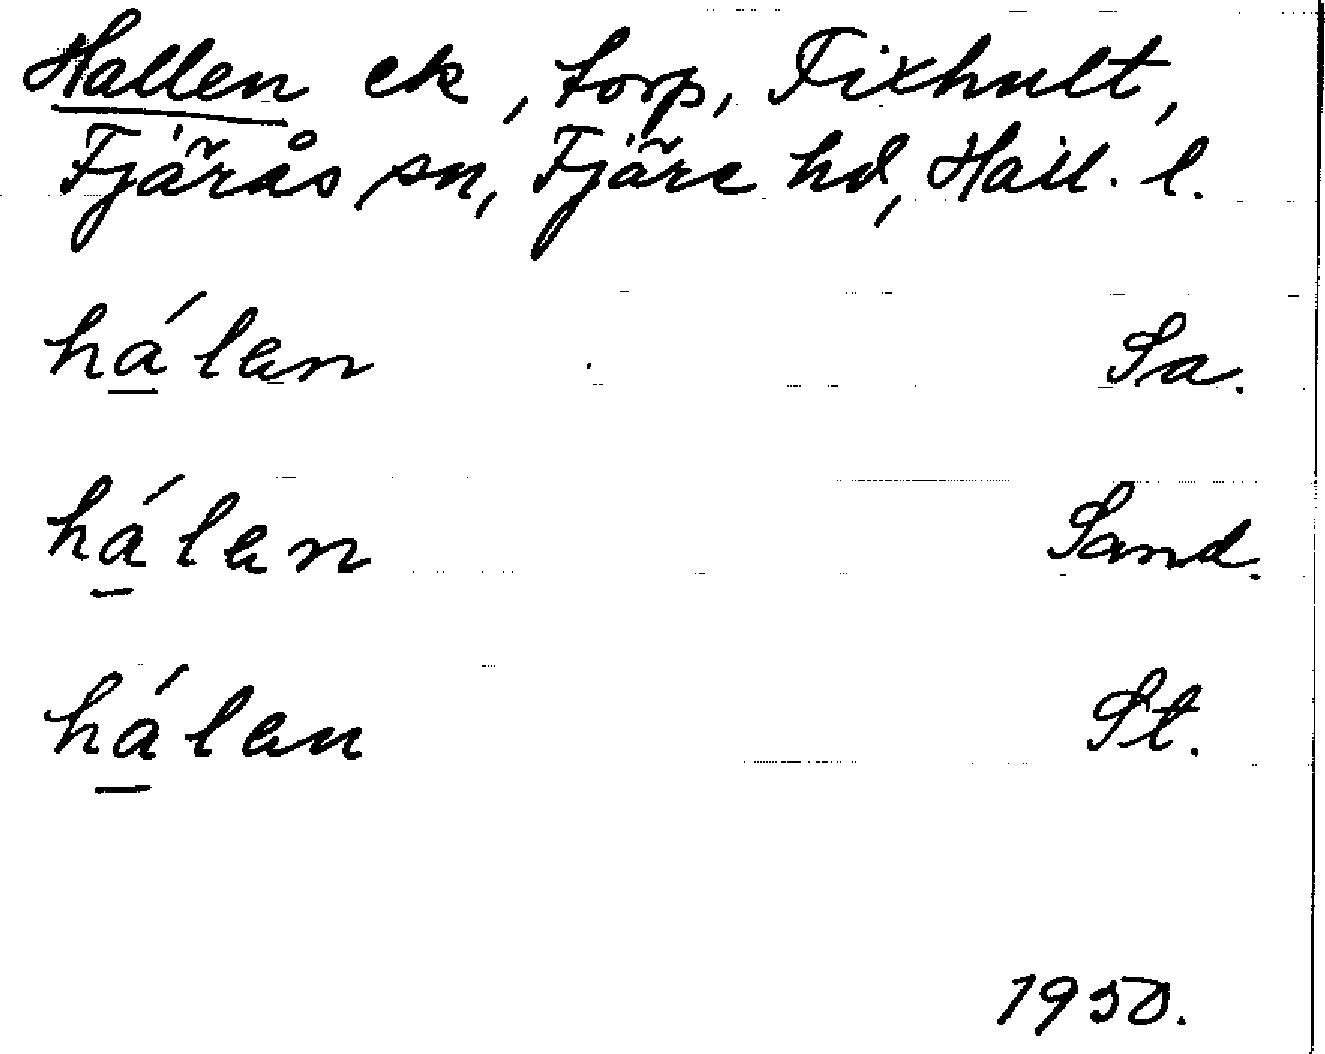 Hallen ek, torp, Fixhult,
Fjärås sn, Fjäre hd, Hall. l.
hálan Sa.
hálan Sand.
hálan St.
1950.